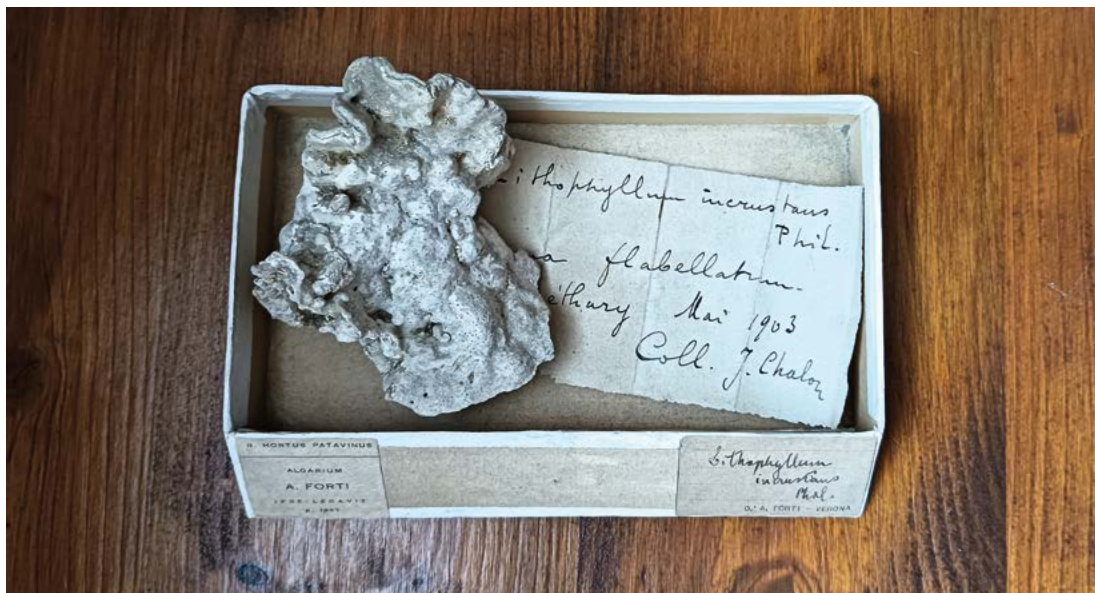 Lithophyllum incrustans
Phil.
flabellatum.
Mai 1903
Coll. J. Chalon
R. HORTUS PATAVINUS
ALGARIUM
A. FORTI
Lithophyllum
incrustans
Phil.
D.r A. FORTI - VERONA